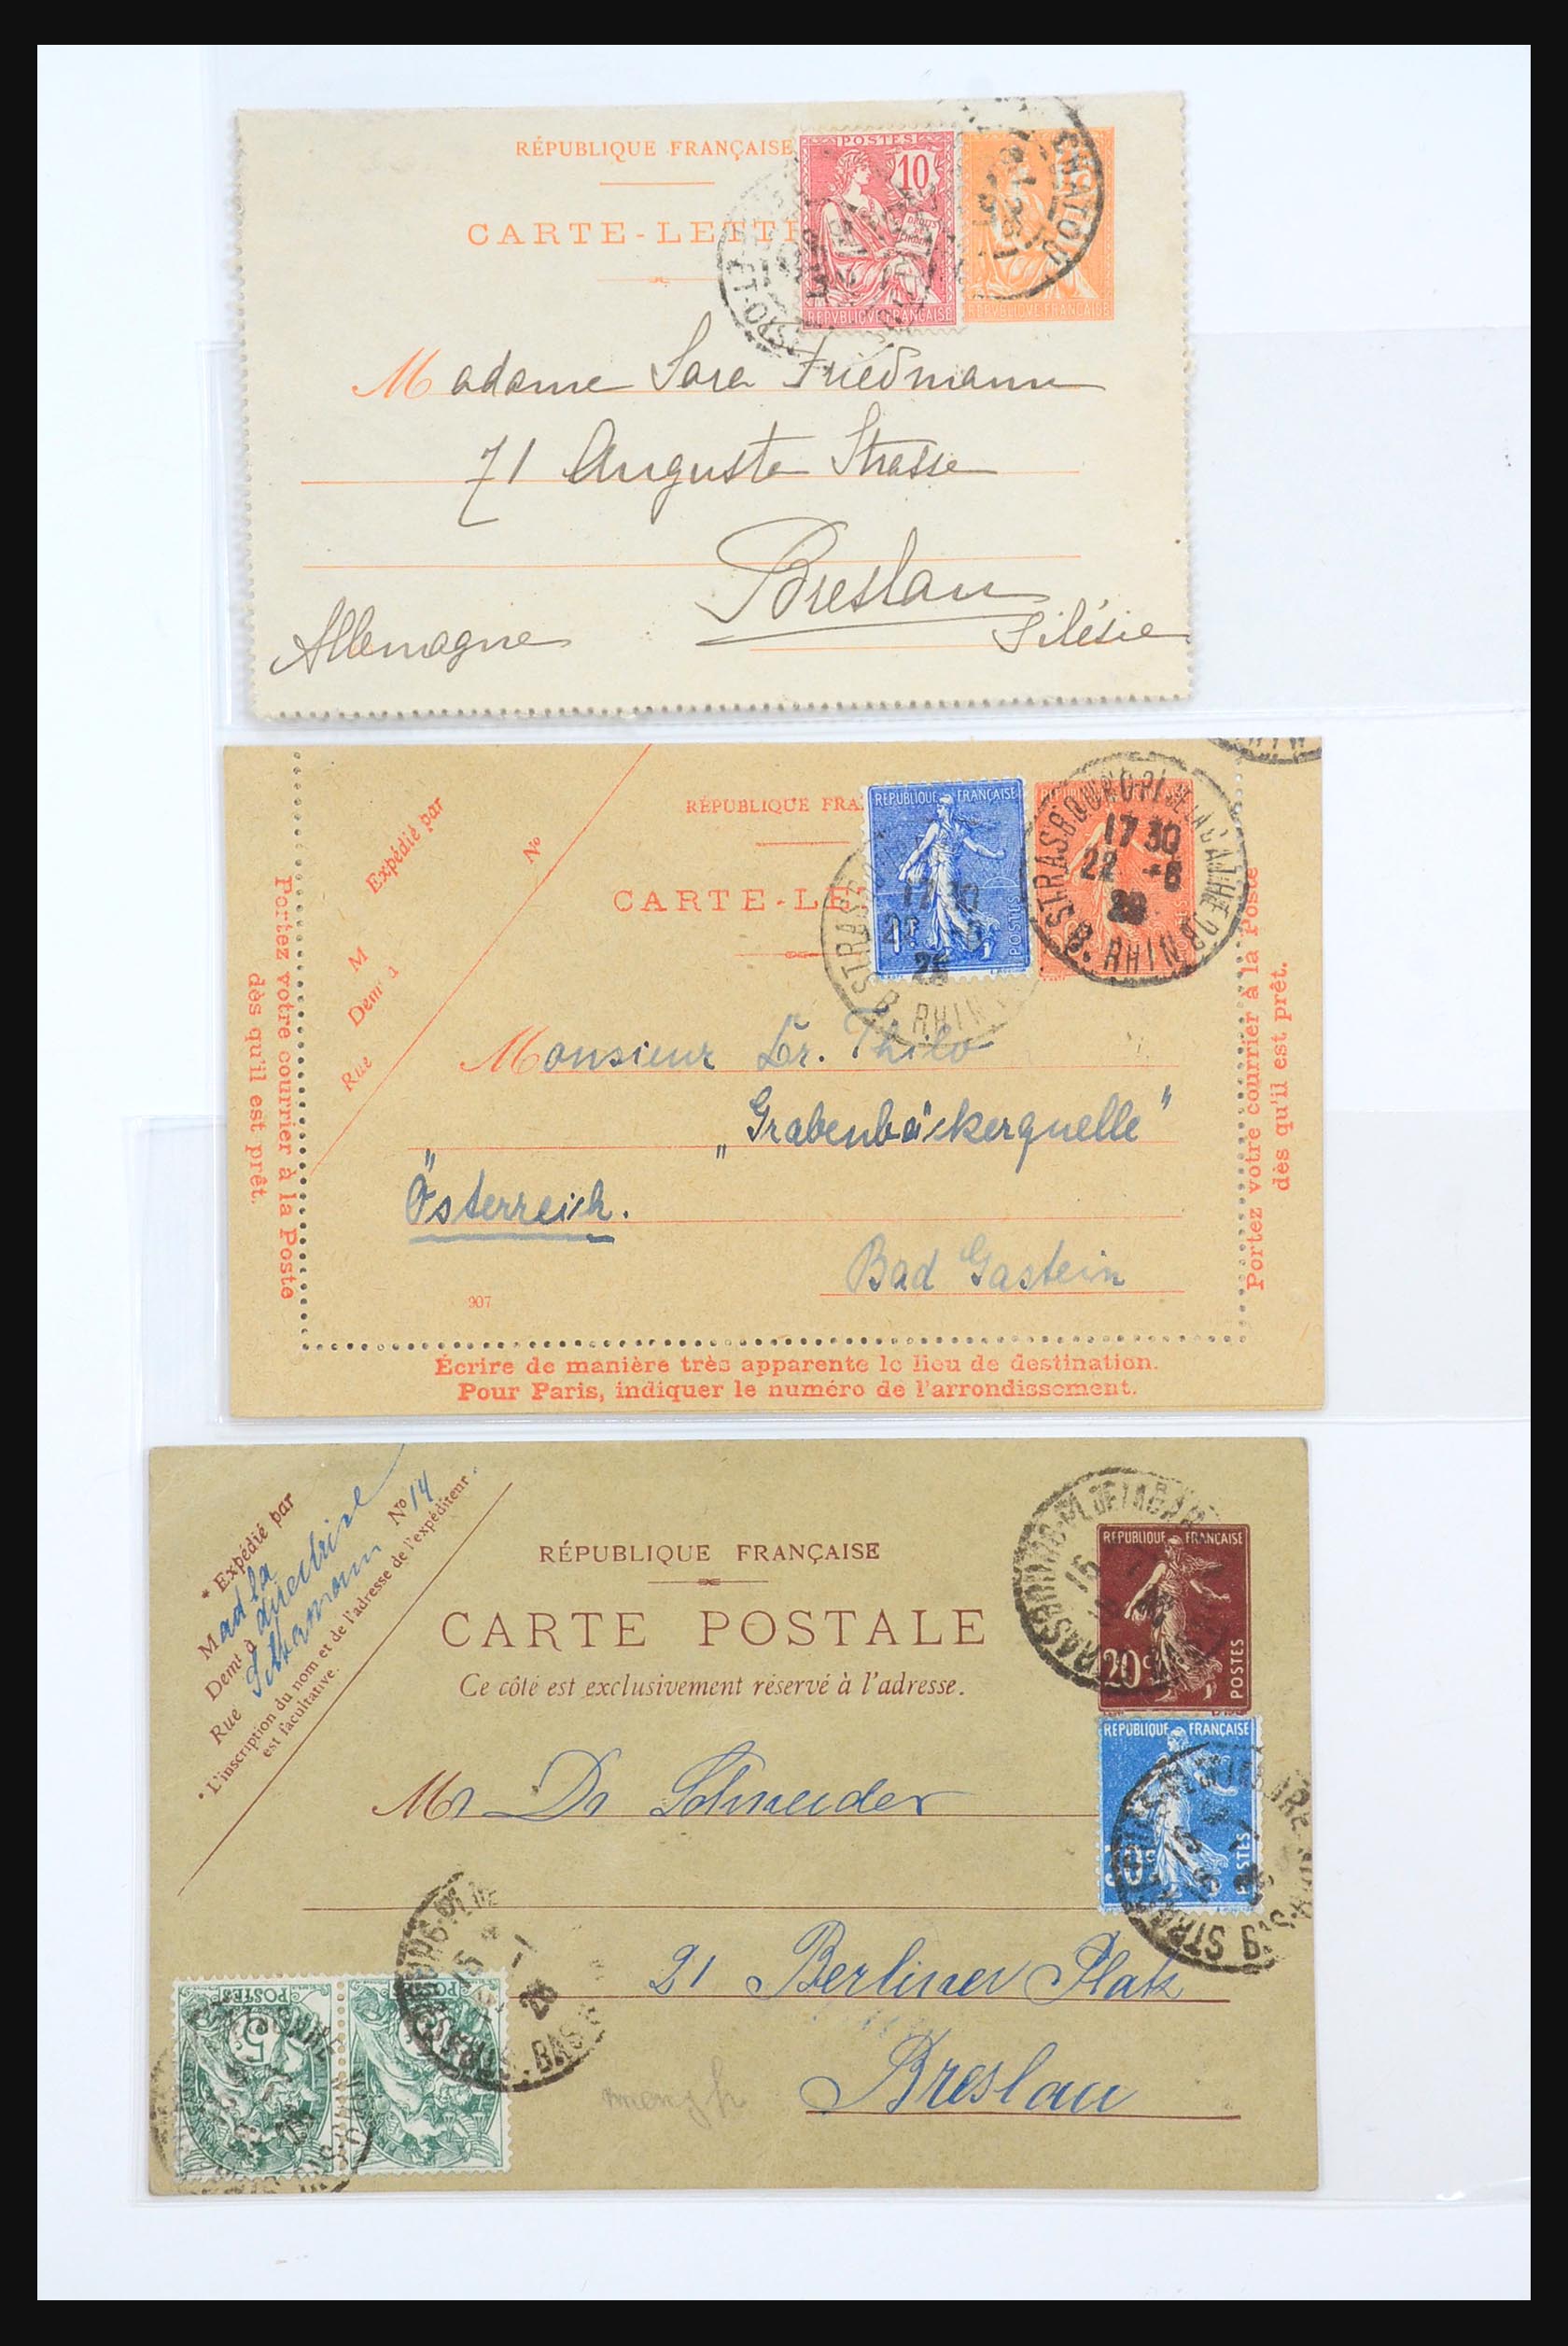 RÉPUBLIQUE FRANÇAISE
CARTE-LETT
POSTES
10
REPVBLIQVE FRANÇAISE
REPVBLIQVE FRANÇAISE
CHATOU
Madame Sara Friedmann
71 Auguste Strasse
Breslau
Silésie
Allemagne
Expédié par
No
M
Demt à
Rue
RÉPUBLIQUE FRA
CARTE-LE
REPUBLIQUE FRANÇAISE
1F
POSTES
17 30
22 -6
B. RHIN
Monsieur Dr. Thilo
„Grabenbäckerquelle"
Österreich.
Bad Gastein
907
Portez votre courrier à la Poste
dès qu'il est prêt.
Portez votre courrier à la Poste
dès qu'il est prêt.
Écrire de manière très apparente le lieu de destination.
Pour Paris, indiquer le numéro de l'arrondissement.
* Expédié par
Mad la
Demt à directrice
No 14
Rue
* L'inscription du nom et de l'adresse de l'expéditeur
est facultative.
RÉPUBLIQUE FRANÇAISE
CARTE POSTALE
Ce côté est exclusivement réservé à l'adresse.
REPUBLIQUE FRANÇAISE
20c
POSTES
REPUBLIQUE FRANÇAISE
POSTES
Mr Dr Schneider
21 Berliner Platz
Breslau
POSTES
5